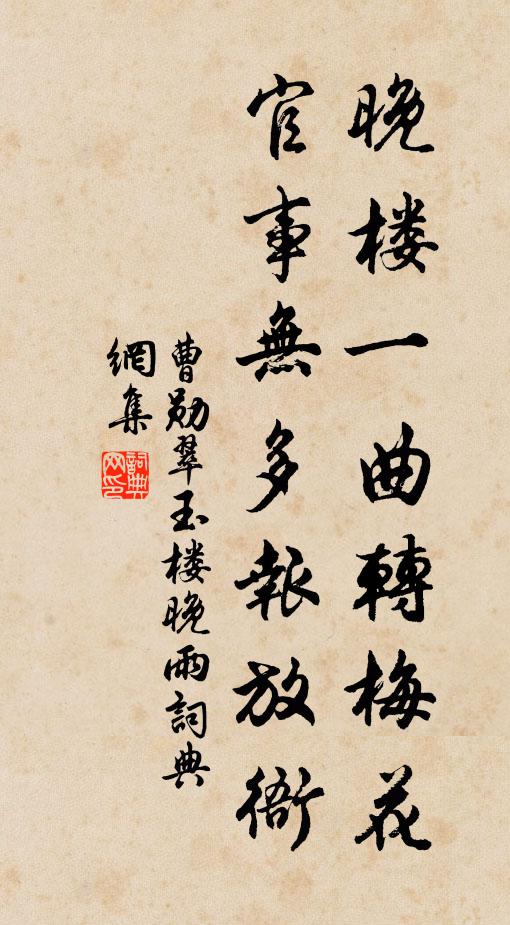 晚楼一曲轉梅花
官事無多報放衙
曹勛翠玉楼晚雨詞典
網集
詞典网印